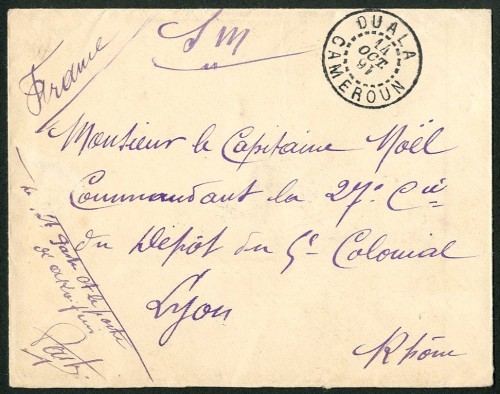 France
S M
DUALA
14
OCT.
CAMEROUN
Monsieur le Capitaine Noël
Commandant la 27e Cie
du Dépôt du 5e Colonial
Lyon
Rhône